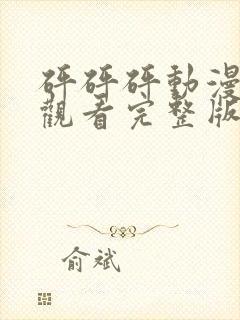 砰砰砰動漫
觀看完整版
俞斌